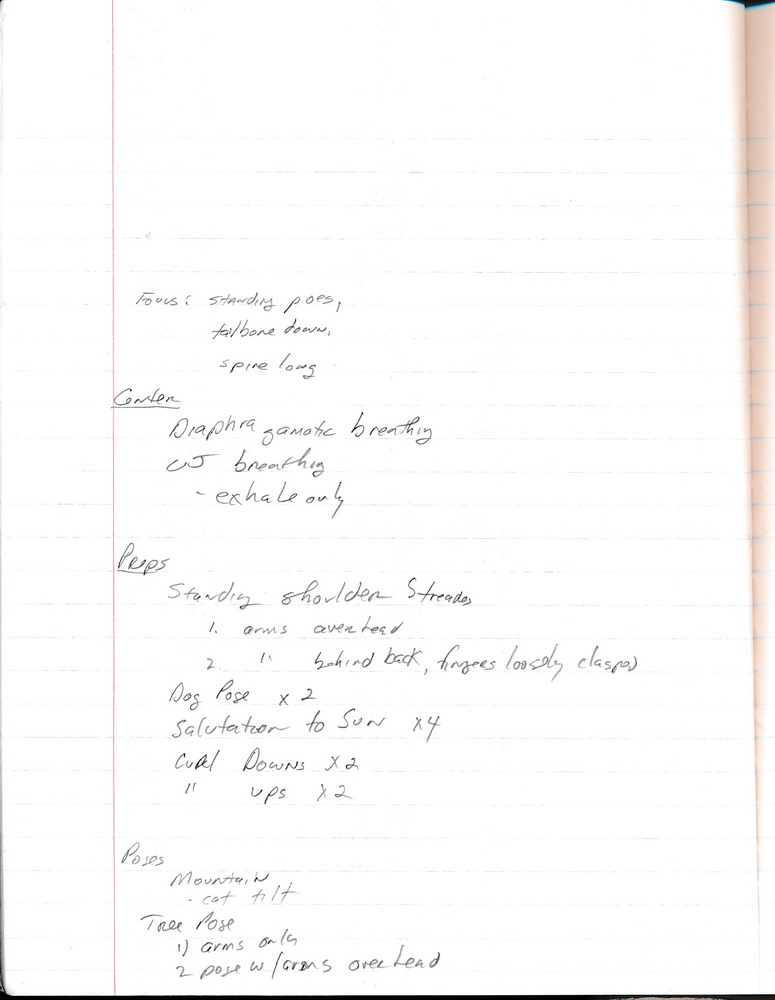 Focus: standing poes,
tailbone down,
spire long
Center
Diaphra gamatic breathing
UJ breathing
- exhale only
Preps
Standing shoulder Streaches
1. arms overhead
2. " behind back, fingers loosely clasped
Dog Pose x 2
Salutation to Sun x4
Curl Downs x2
" ups x2
Poses
Mountain
- cat tilt
Tree Pose
1) arms only
2 pose w/arms overhead